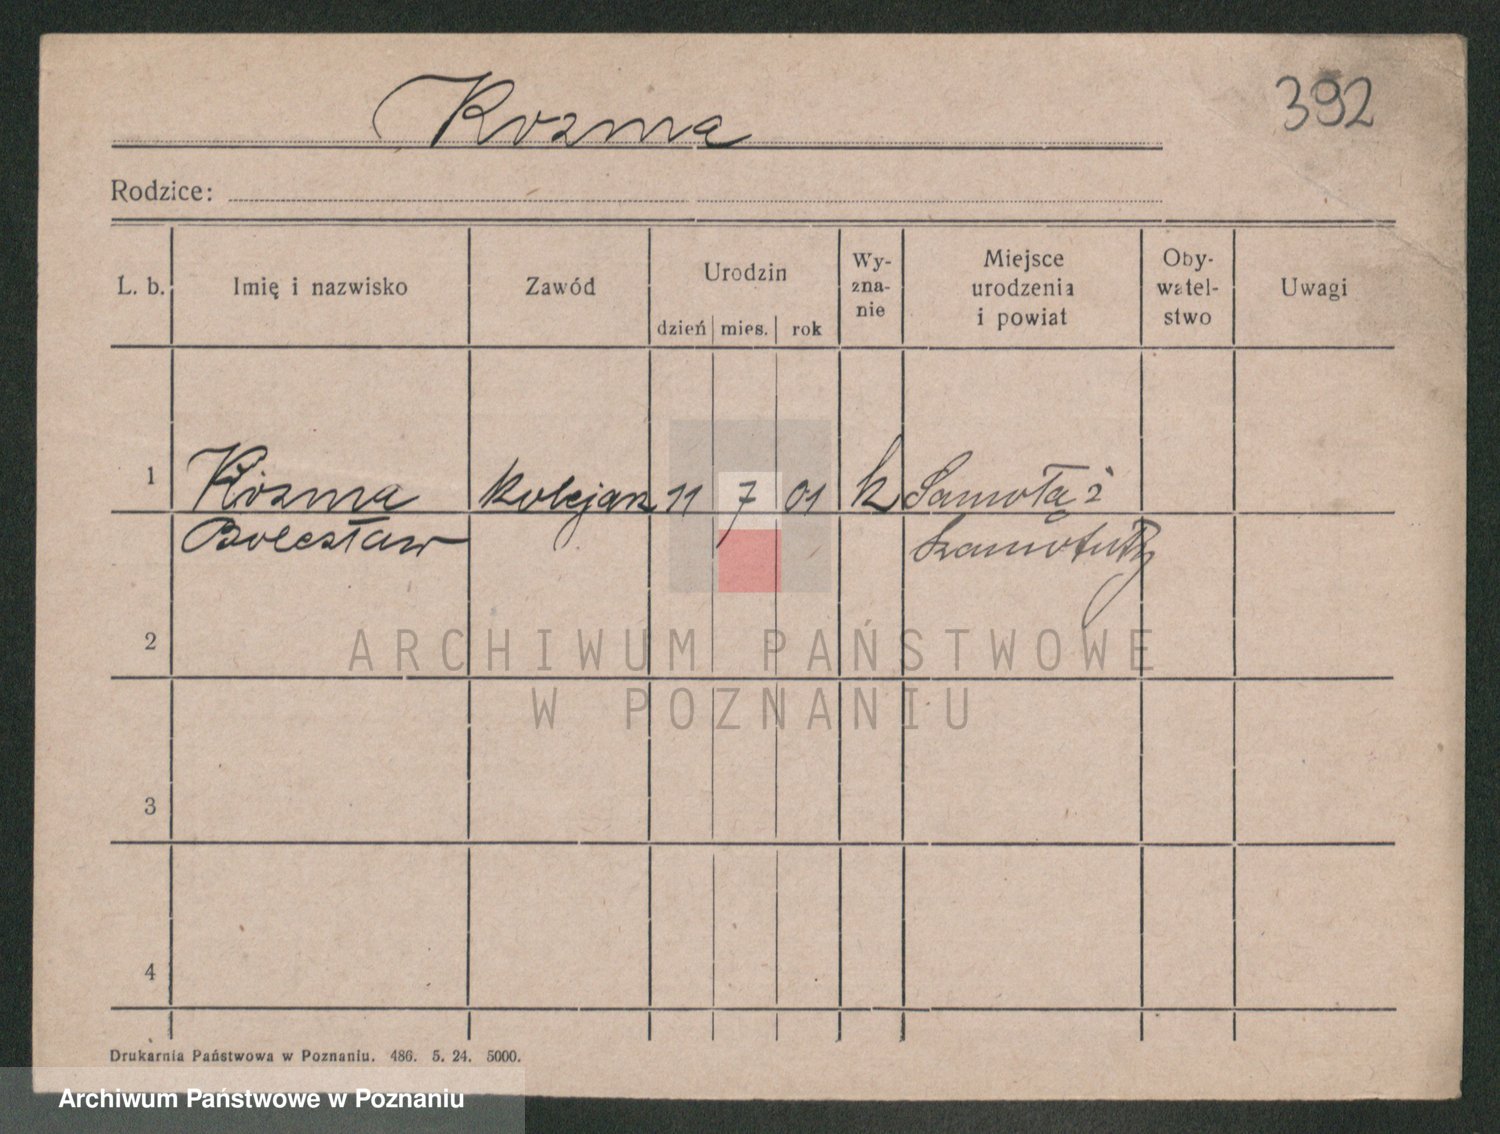 Kozma
392
Rodzice:
L. b.
Imię i nazwisko
Zawód
Urodzin
dzień mies. rok
Wy-
zna-
nie
Miejsce
urodzenia
i powiat
Oby-
watel-
stwo
Uwagi
1 Kozma kolejarz 11 7 01 k
Bolesław Szamotuły
2
ARCHIWUM PAŃSTWOWE
W POZNANIU
3
4
Drukarnia Państwowa w Poznaniu. 486. 5. 24. 5000.
Archiwum Państwowe w Poznaniu